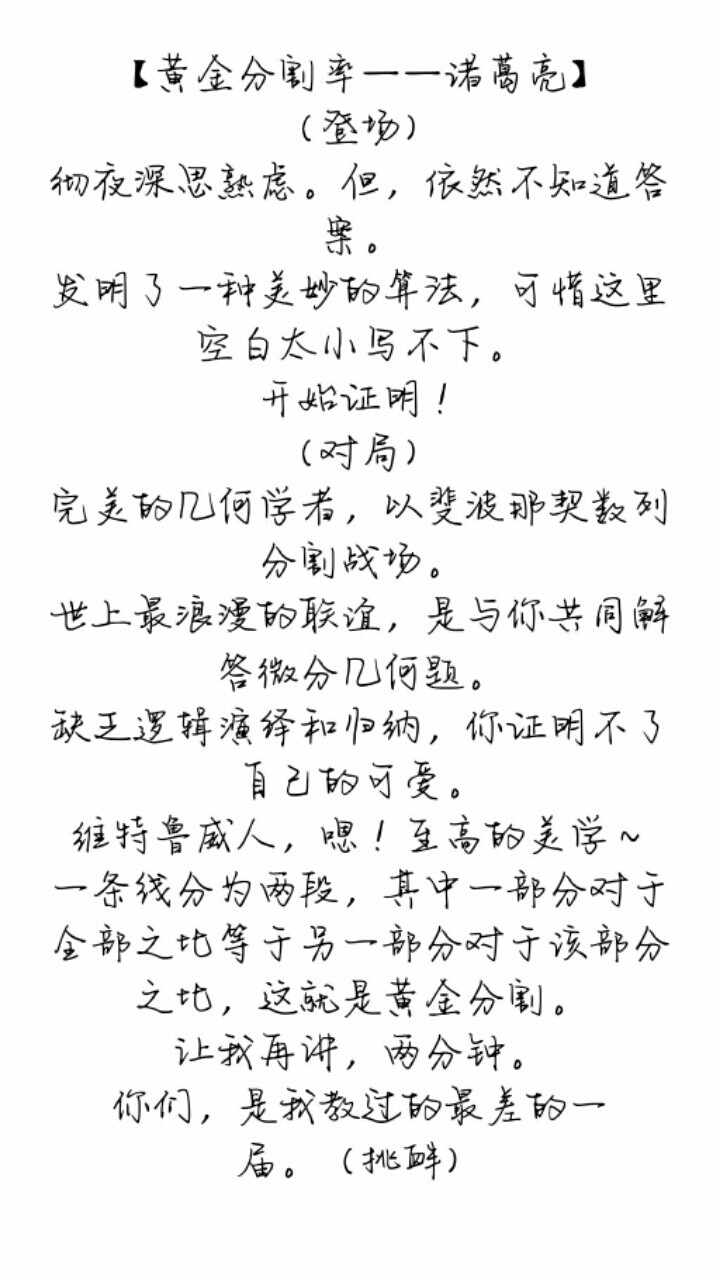 【黄金分割率——诸葛亮】
（登场）
彻夜深思熟虑。但，依然不知道答
案。
发明了一种美妙的算法，可惜这里
空白太小写不下。
开始证明！
（对局）
完美的几何学者，以斐波那契数列
分割战场。
世上最浪漫的联谊，是与你共同解
答微分几何题。
缺乏逻辑演绎和归纳，你证明不了
自己的可爱。
维特鲁威人，嗯！至高的美学~
一条线分为两段，其中一部分对于
全部之比等于另一部分对于该部分
之比，这就是黄金分割。
让我再讲，两分钟。
你们，是我教过的最差的一
届。（挑衅）